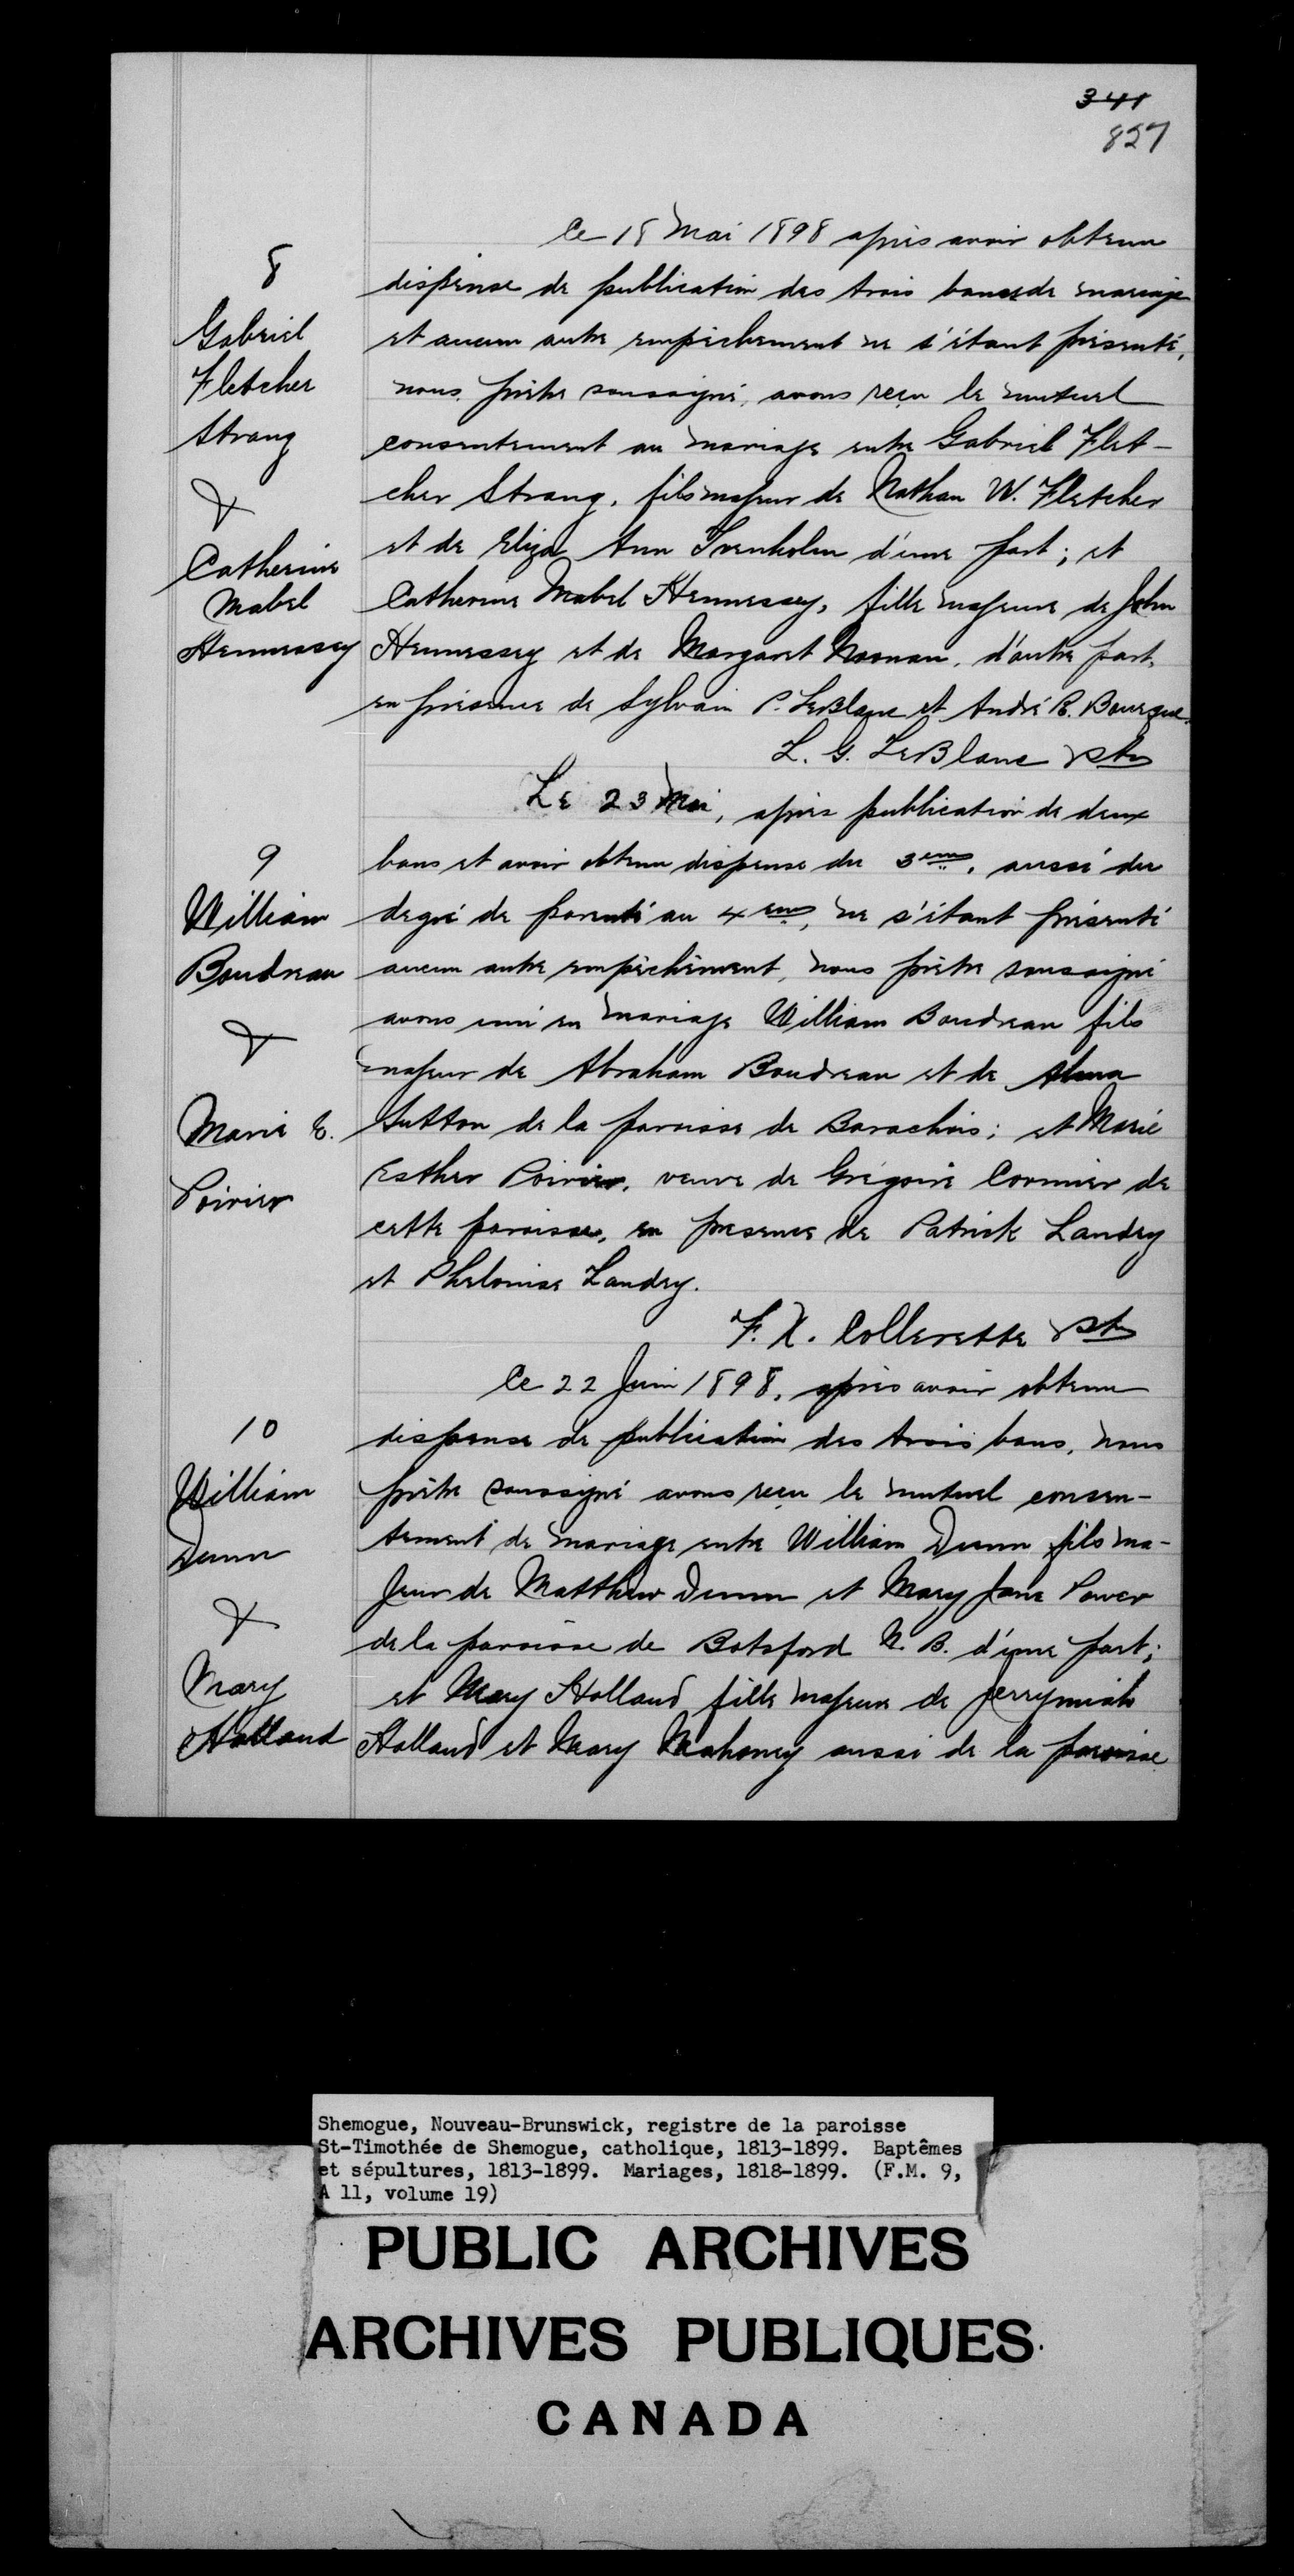 341
827
8
Gabriel
Fletcher
Strang
&
Catherine
Mabel
Hennessey
Ce 18 Mai 1898 après avoir obtenu
dispense de publication des trois bancs de mariage
et aucun autre empêchement ne s'étant présenté,
nous, prêtre soussigné, avons reçu le mutuel
consentement au mariage entre Gabriel Flet-
cher Strang, fils majeur de Nathan W. Fletcher
et de Eliza Ann Trenholm d'une part; et
Catherine Mabel Hennessey, fille majeure de John
Hennessey et de Margaret Noonan, d'autre part,
en présence de Sylvain P. LeBlanc et André R. Bourque.
L. G. LeBlanc Ptre
9
William
Boudreau
&
Marie E.
Poirier
Le 23 Mai, après publication de deux
bans et avoir obtenu dispense du 3eme, aussi du
degré de parenté au 4eme, ne s'étant présenté
aucun autre empêchement, nous prêtre soussigné
avons uni en mariage William Boudreau fils
majeur de Abraham Boudreau et de
Sutton de la paroisse de Barachois; et Marie
Esther Poirier, veuve de Grégoire Cormier de
cette paroisse, en presence de Patrick Landry
et Phelonise Landry.
F. X. Collerette Ptre
10
William
Dunn
&
Mary
Holland
Ce 22 Juin 1898, après avoir obtenu
dispense de publication des trois bans, nous
prêtre soussigné avons reçu le mutuel consen-
tement de mariage entre William Dunn fils ma-
jeur de Matthew Dunn et Mary Jane Power
de la paroisse de Botsford N. B. d'une part;
et Mary Holland fille majeure de Jerrymiah
Holland et Mary Mahoney aussi de la paroisse
Shemogue, Nouveau-Brunswick, registre de la paroisse
St-Timothée de Shemogue, catholique, 1813-1899. Baptêmes
et sépultures, 1813-1899. Mariages, 1818-1899. (F.M. 9,
A 11, volume 19)
PUBLIC ARCHIVES
ARCHIVES PUBLIQUES
CANADA